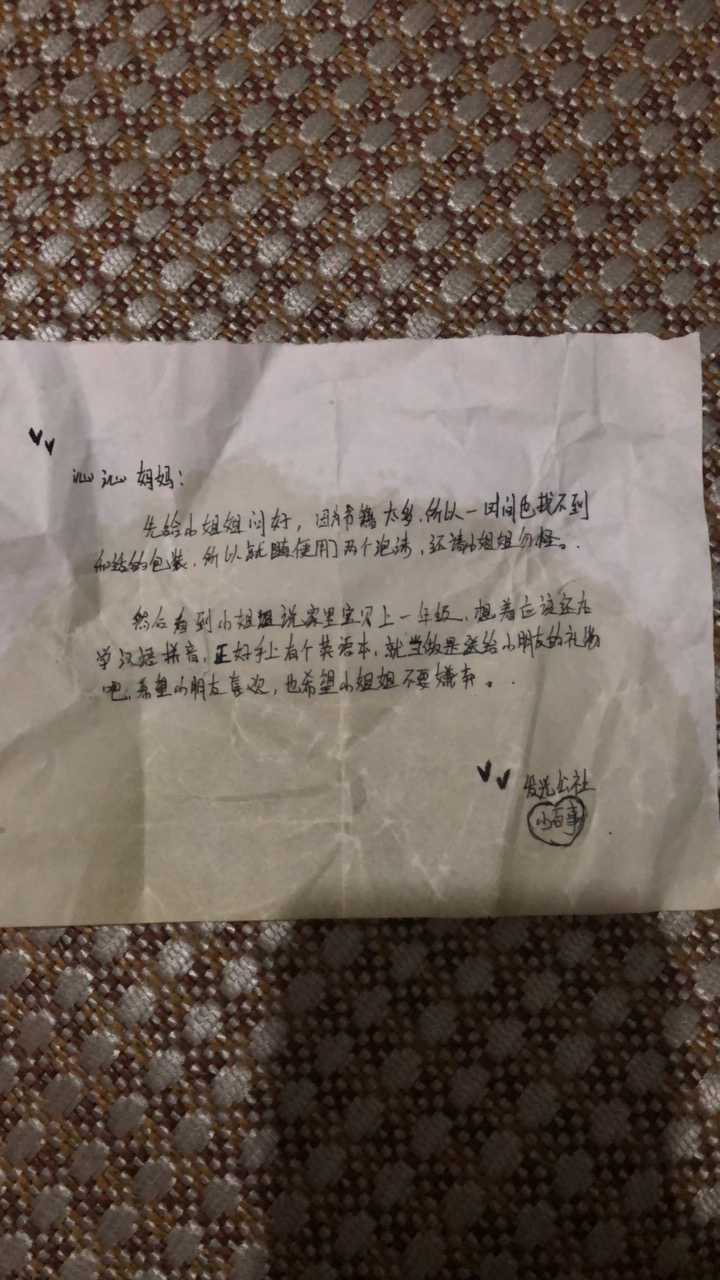 汕汕妈妈：
先给小姐姐问好，因为书籍太多，所以一时间也找不到
和适的包装，所以就随便用了两个泡沫，还请小姐姐勿怪。.
然后看到小姐姐说家里宝贝上一年级，想着应该还在
学汉语拼音，正好手上有个英语本，就当做是送给小朋友的礼物
吧，希望小朋友喜欢，也希望小姐姐不要嫌弃。.
发光公社
小百事